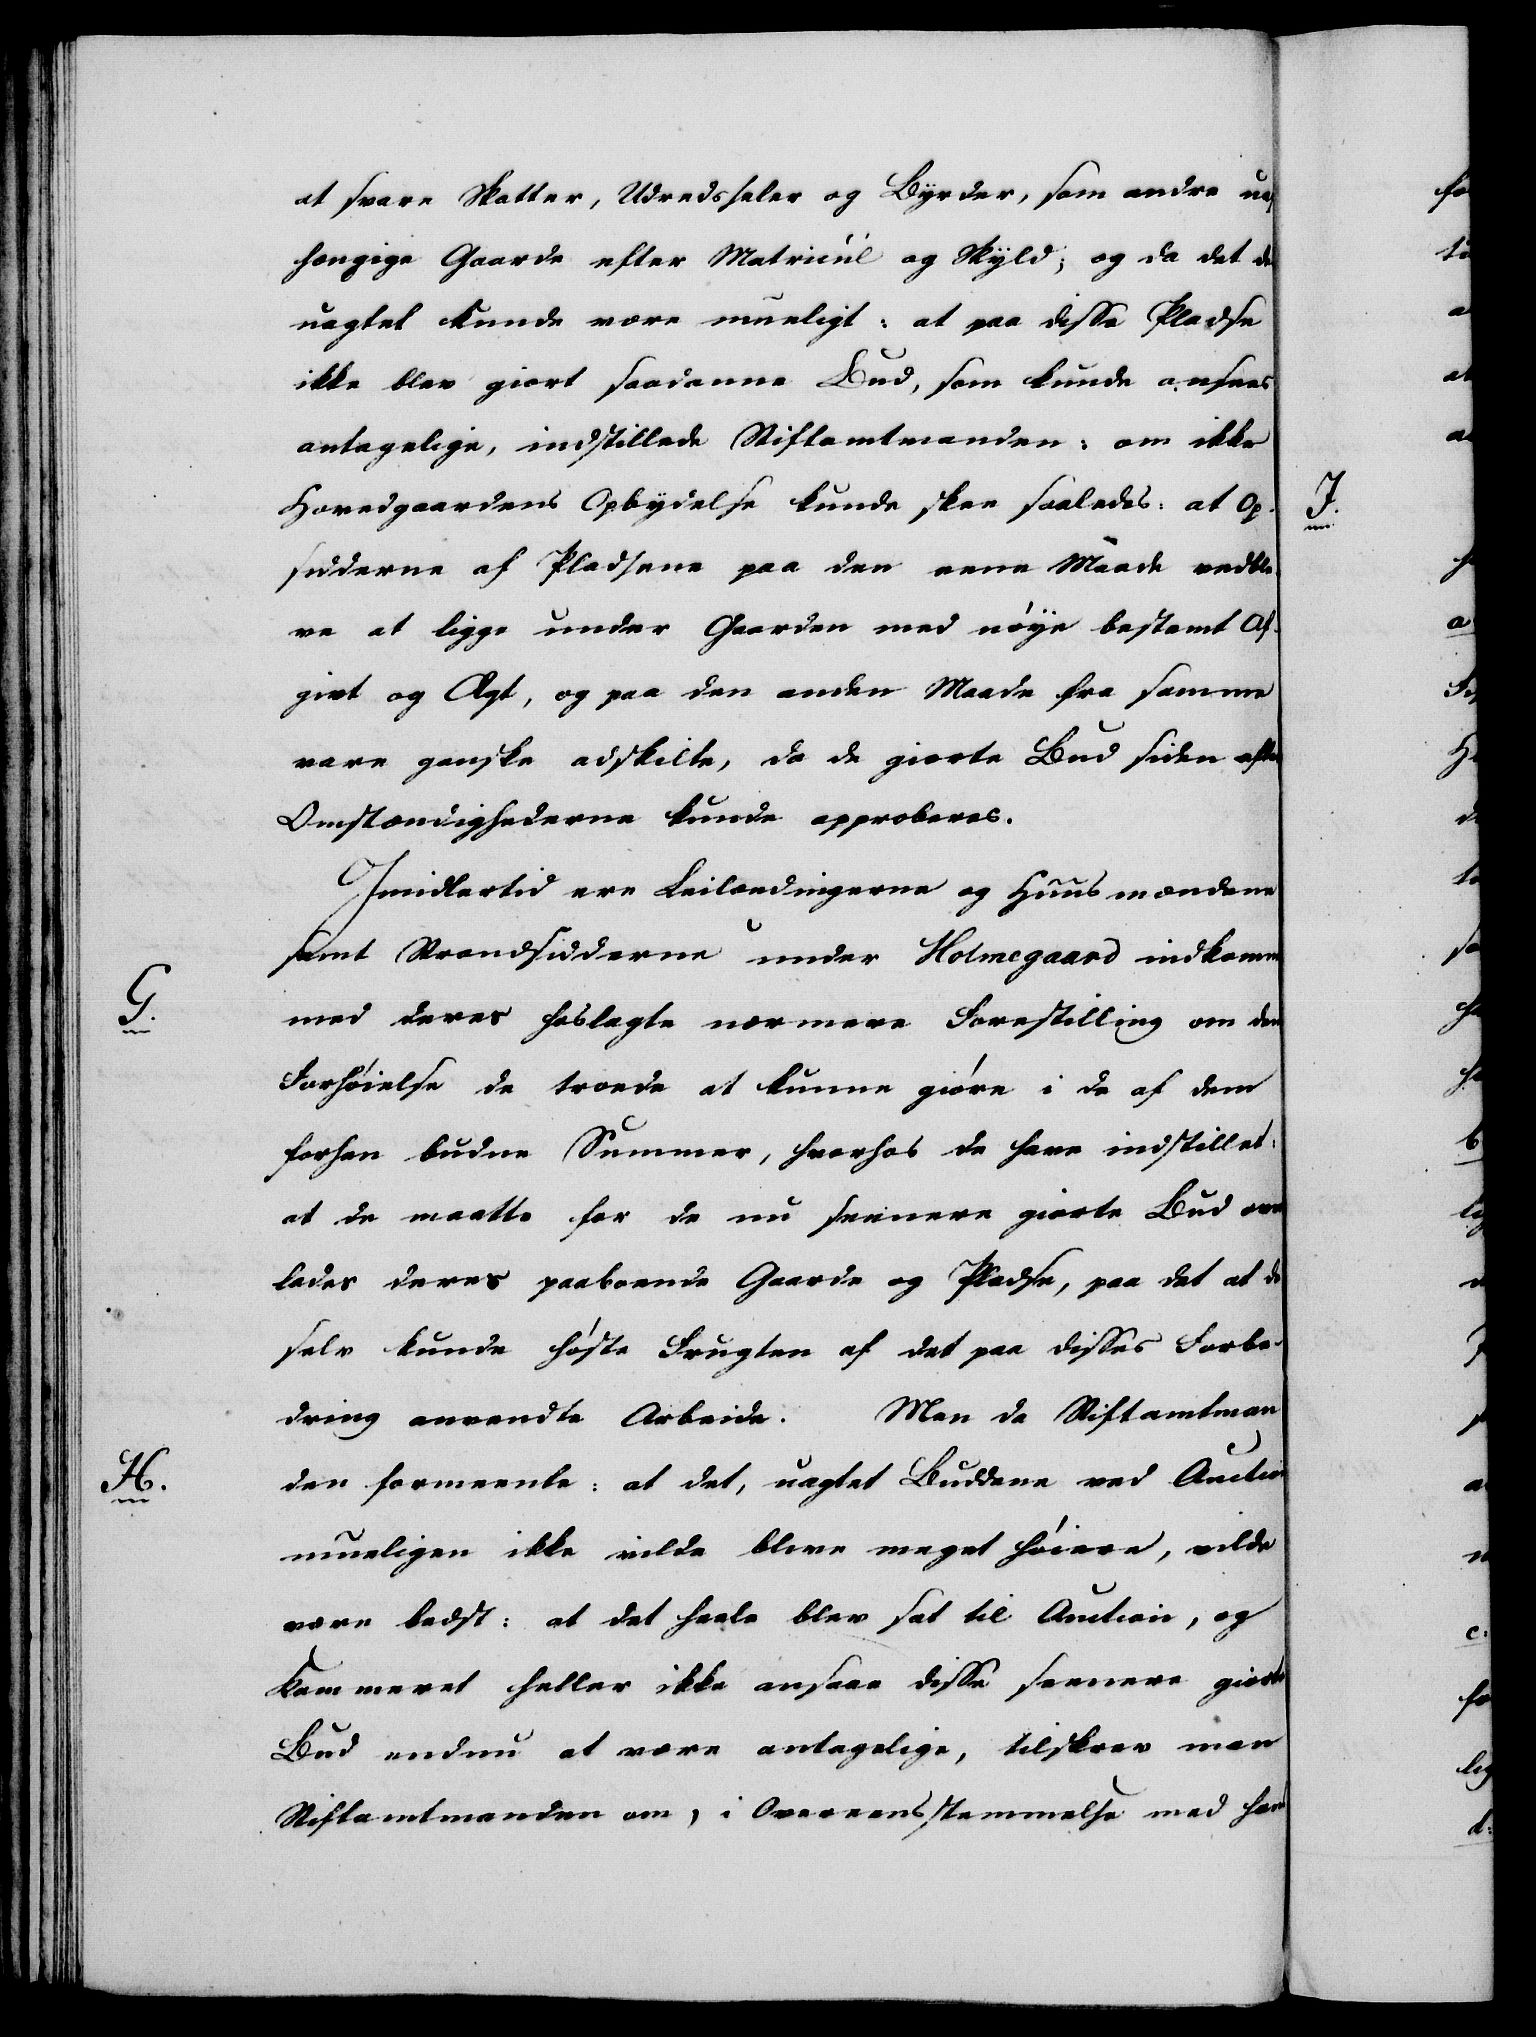 at svare Skatter, Udredsseler og Byrder, som andre uaf
hængige Gaarde efter Matricul og Skyld; og da det des
uagtet kunde være mueligt: at paa disse Pladse
ikke blev giort saadanne Bud, som kunde ansees
antagelige, indstillede Stiftamtmanden: om ikke
Hovedgaardens Opbydelse kunde skee saaledes: at Op-
sidderne af Pladsene paa den eene Maade vedble-
ve at ligge under Gaarden med nøye bestemt Af-
givt og Ægt, og paa den anden Maade fra samme
vare ganske adskilte, da de giorte Bud siden efter
Omstændighederne kunde approberes.
Imidlertid ere Leilændingerne og Huusmændene
samt Strandsidderne under Holmegaard indkomne
G.
med deres hoslagte nærmere Forestilling om den
Forhøielse de troede at kunne giøre i de af dem
forhen budne Summer, hvorhos de have indstillet:
at de maatte for de nu seenere giorte Bud over
lades deres paaboende Gaarde og Pladse, paa det at de
selv kunde høste Frugten af det paa disses Forbe-
dring anvendte Arbeide. Men da Stiftamtman
H.
den formeente: at det, uagtet Buddene ved Auction
mueligen ikke vilde blive meget høiere, vilde
være bedst: at det heele blev sat til Auction, og
Kammeret heller ikke ansaae disse seenere giorte
Bud endnu at være antagelige, tilskrev man
Stiftamtmanden om, i Overeensstemmelse med hans
I.